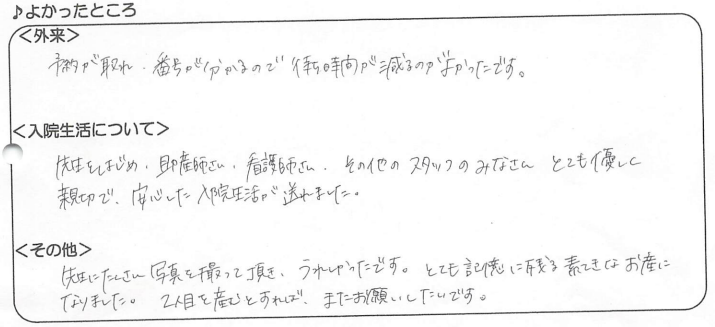 ♪よかったところ
<外来>
予約が取れ、番号が分かるので待ち時間が減るのがよかったです。
<入院生活について>
先生をはじめ、助産師さん、看護師さん、その他のスタッフのみなさん とても優しく
親切で、安心した入院生活が送れました。
<その他>
先生にたくさん写真を撮って頂き、うれしかったです。とても記憶に残る素てきなお産に
なりました。 2人目を産むとすれば、またお願いしたいです。